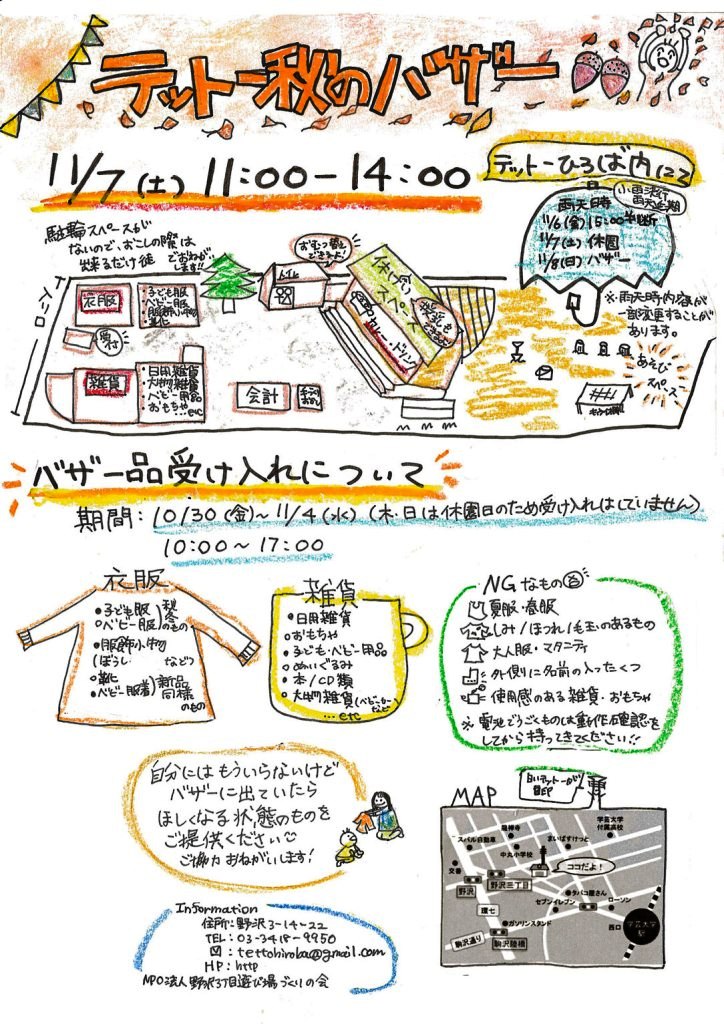 テットー秋のバザー
11/7(土) 11:00-14:00
テットーひろば内にて
駐輪スペースが
ないので、おこしの際は
出来るだけ徒歩でおねがいします!!
小雨決行
雨天延期
雨天時
11/6(金)15:00判断
11/7(土)休園
11/8(日)バザー
※雨天時内容が
一部変更することが
あります。
入口
衣服
・子ども服
・ベビー服
・服飾小物
・靴
受付
雑貨
・日用雑貨
・大物雑貨
・ベビー用品
・おもちゃ
etc
トイレ
おむつ替え
できるよ!
休けい
スペース
カレー・ドリンク
会計
あそび
スペース
バザー品受け入れについて
期間:10/30(金)~11/4(水)(木・日は休園日のため受け入れはしていません)
10:00~17:00
衣服
・子ども服
・ベビー服
秋冬のもの
・服飾小物
(ぼうし など)
・靴
・ベビー服
新品同様のもの
雑貨
・日用雑貨
・おもちゃ
・子ども・ベビー用品
・ぬいぐるみ
・本/CD類
・大物雑貨(ベビーカーなど)
…etc
NGなもの
夏服・春服
しみ/ほつれ/毛玉のあるもの
大人服・マタニティ
外側に名前の入ったくつ
使用感のある雑貨・おもちゃ
※電池でうごくものは動作確認を
してから持ってきてください!!
自分にはもういらないけど
バザーに出ていたら
ほしくなる状態のものを
ご提供ください
ご協力おねがいします!
Information
住所:野沢3-14-22
TEL:03-3418-9950
:tettohiroba@gmail.com
HP:http
NPO法人野沢3丁目遊び場づくりの会
MAP
白いテットーが
目印
龍禅寺
学芸大学
附属高校
スバル自動車
まいばすけっと
中丸小学校
交番
ココだよ!
野沢
野沢三丁目
タバコ屋さん
セブンイレブン
ローソン
環七
ガソリンスタンド
西口
学芸大学
駅
駒沢通り
駒沢陸橋